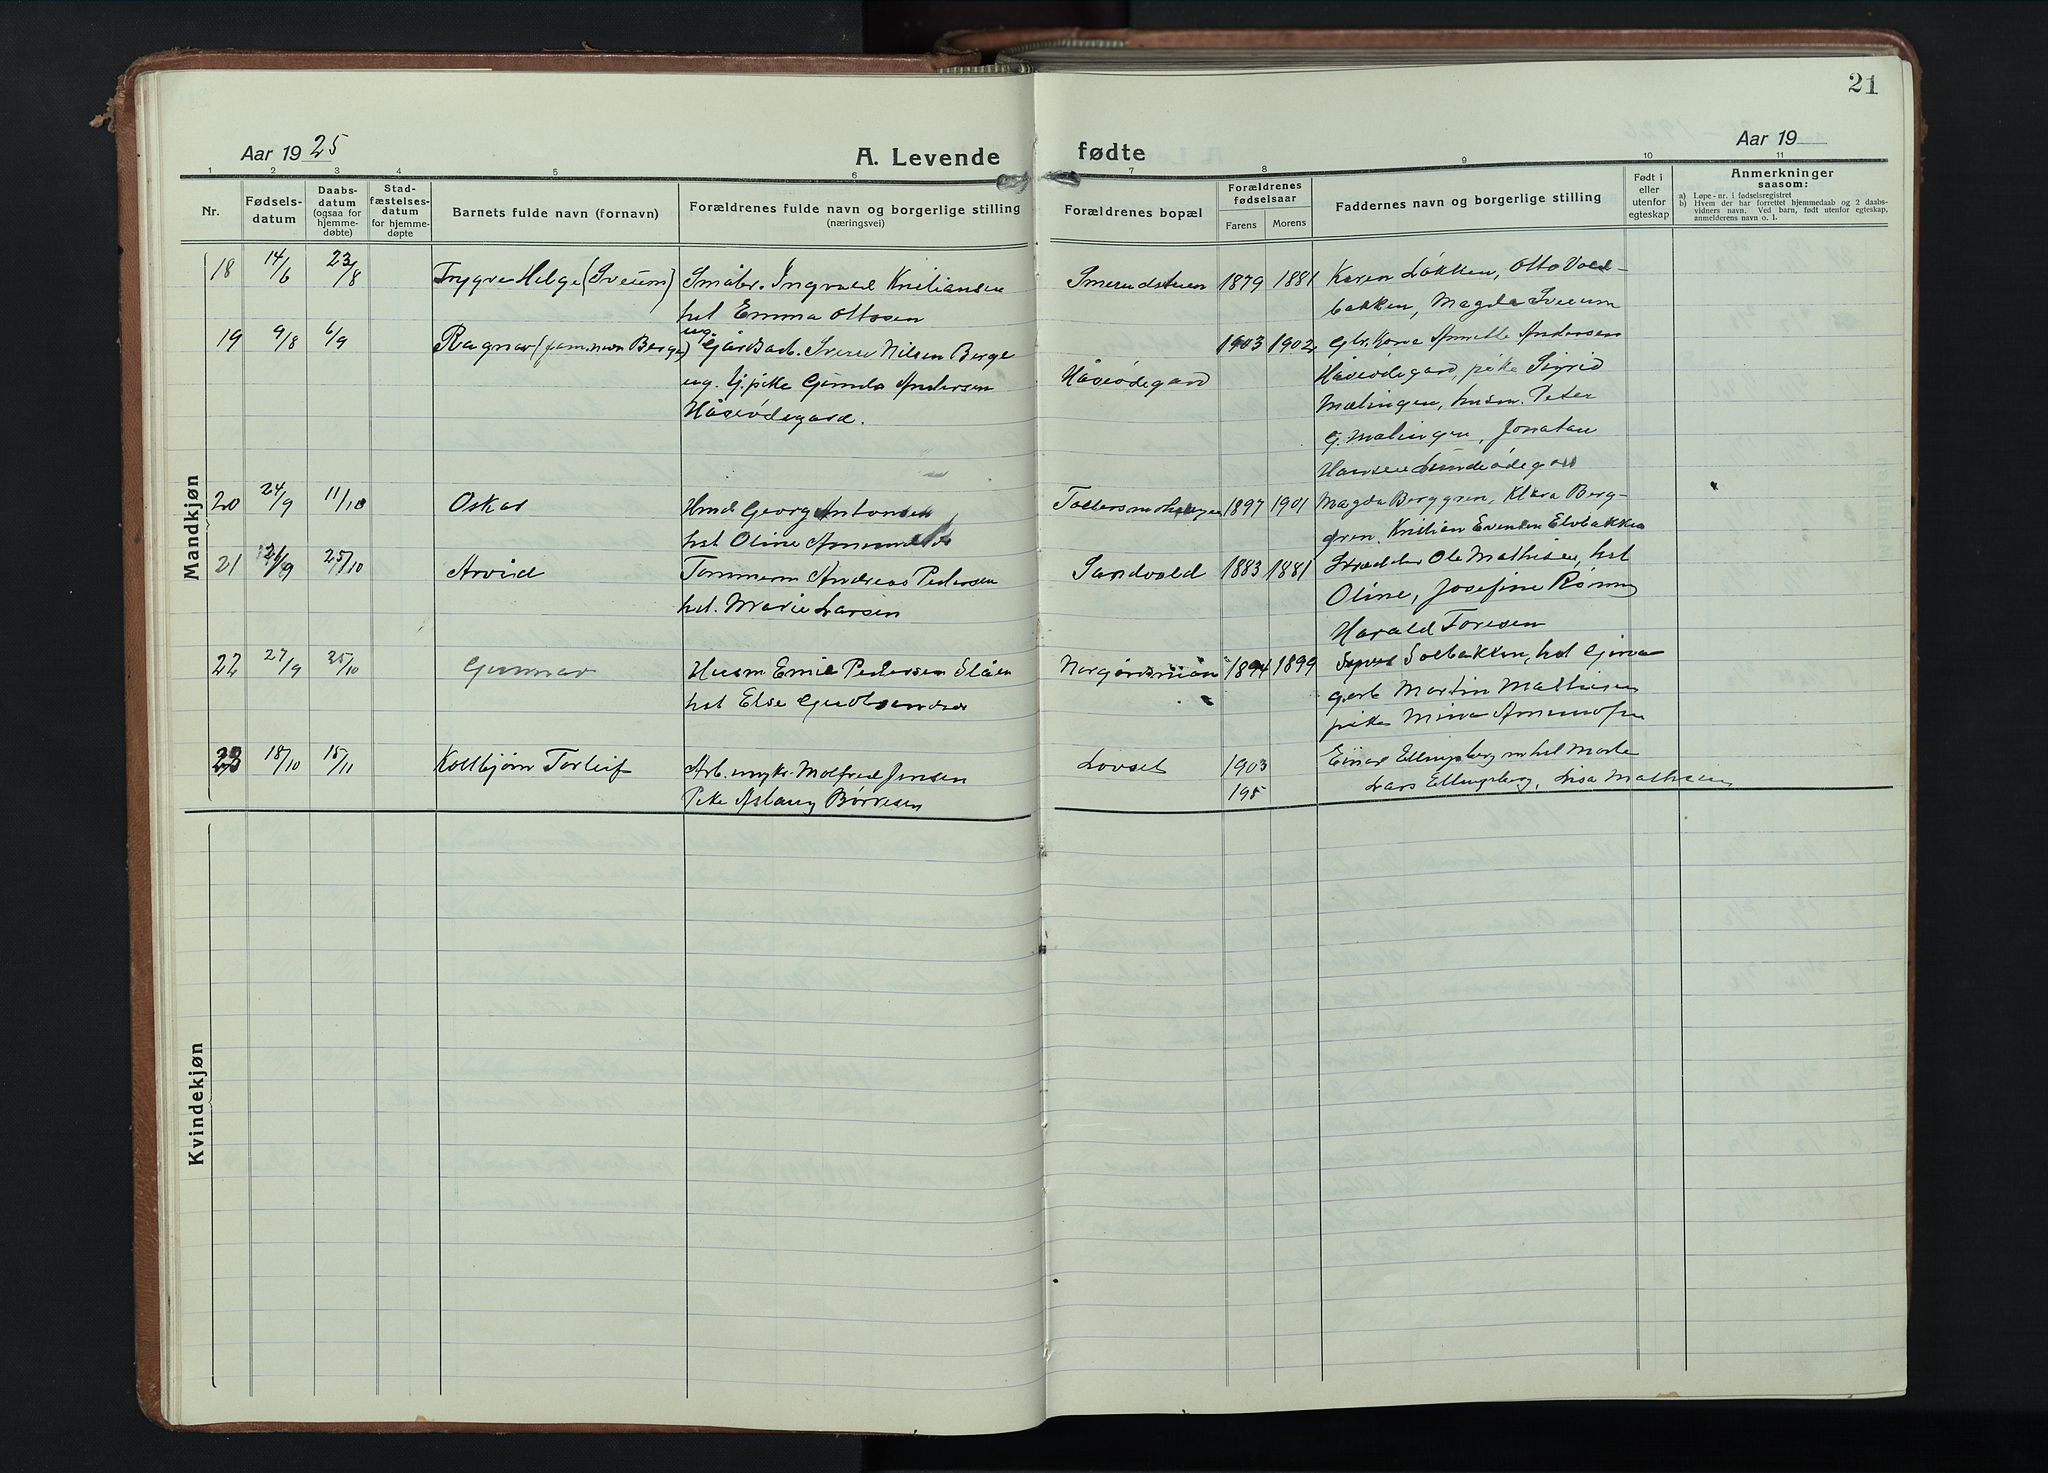 21
Aar 1925
A. Levende fødte
Aar 19
1 2 3 4 5 6 7 8 9 10 11
Nr.
Fødsels-
datum
Daabs-
datum
(ogsaa for
hjemme-
døbte)
Stad-
fæstelses-
datum
for hjemme-
døpte
Barnets fulde navn (fornavn)
Forældrenes fulde navn og borgerlige stilling
(næringsvei)
Forældrenes bopæl
Forældrenes
fødselsaar
Farens
Morens
Faddernes navn og borgerlige stilling
Født i
eller
utenfor
egteskap
Anmerkninger
saasom:
a) Løpe-nr. i fødselsregistret
b) Hvem der har forrettet hjemmedaab og 2 daabs-
vidners navn. Ved barn, født utenfor egteskap,
anmelderens navn o. l.
Mandkjøn
18 14/6 23/8 Trygve Helge (Sveum) Småbr. Ingvald Kristiansen
hst Emma Ottosen
1879 1881 Karen Løkken, Otto Vold-
bakken, Magda Sveum
19 9/8 6/9 Ragnar (fam.navn Berge) ug. Gårdsarb. Sverre Nilsen Berge
ug. tj. pike Gunda Andersen
Håsveødegard.
Håsveødegard
1903 1902 Annette Andersen
Håsveødegard, pike Sigrid
Mælingen, husm. Peter
G. Mælingen, Jonatan
Hansen Lundeødegard
20 24/9 11/10 Oskar Georg Antonsen
hst Oline
1897 1901 Magda Berggren, Klara Berg-
gren, Kristian Evensen Elvbakken
21 21/9 25/10 Arvid Tømmerm Andreas Pedersen
hst. Marie Larsen
Sandvold 1883 1881 Skrædder Ole Mathisen, hst
Oline, Josefine Rønning
Harald Toresen
22 27/9 25/10 Gunnar Husm Emil Pedersen Slåen
hst Else Gudbrandsen
1894 1899 Solbakken, hst Gina
garb Martin Mathisen
pike Mina
23 18/10 15/11 Kolbjørn Torleif Arb. ungkr. Molfred Jensen
Pike Aslaug Børresen
Lovset 1903
195
Einar Ellingsberg m hst Marte
Lars Ellingsberg, Lisa Mathisen
Kvindekjøn